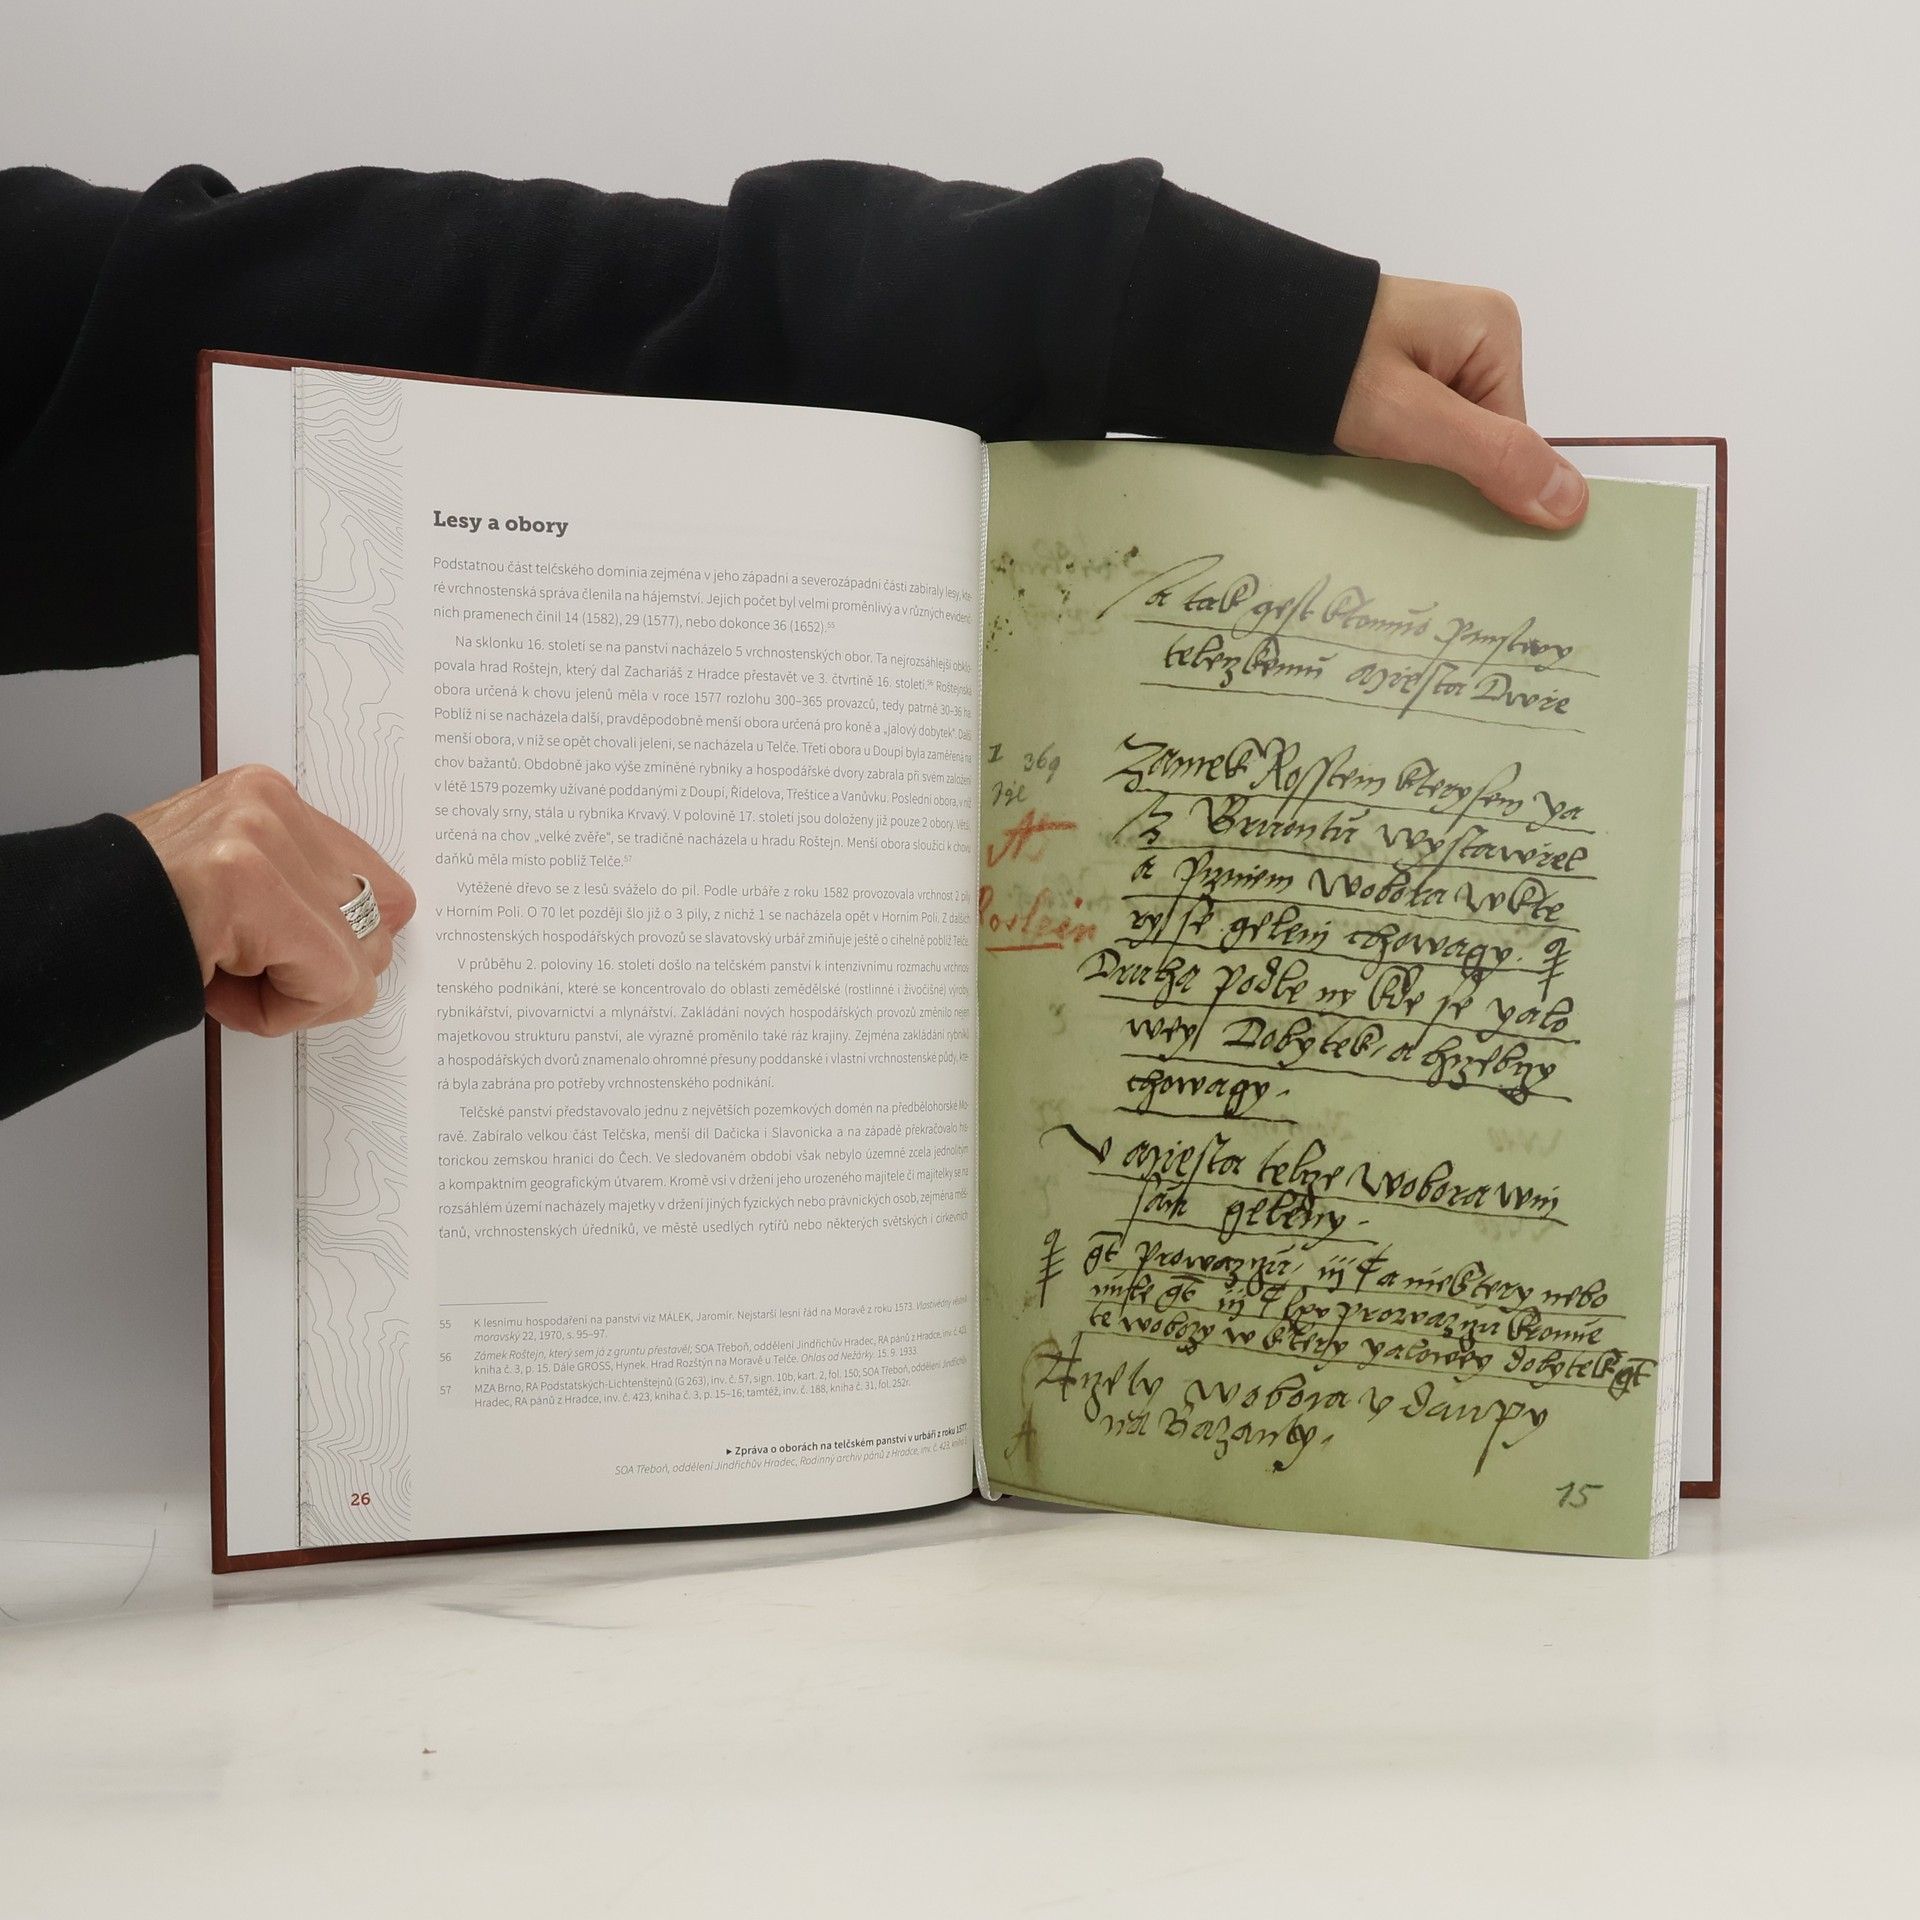 Lesy a obory
Podstatnou část telčského dominia zejména v jeho západní a severozápadní části zabíraly lesy, kte-
ré vrchnostenská správa členila na hájemství. Jejich počet byl velmi proměnlivý a v různých evidenč-
ních pramenech činil 14 (1582), 29 (1577), nebo dokonce 36 (1652).55
Na sklonku 16. století se na panství nacházelo 5 vrchnostenských obor. Ta nejrozsáhlejší obklo-
povala hrad Roštejn, který dal Zachariáš z Hradce přestavět ve 3. čtvrtině 16. století.56 Roštejnská
obora určená k chovu jelenů měla v roce 1577 rozlohu 300–365 provazců, tedy patrně 30–36 ha.
Poblíž ní se nacházela další, pravděpodobně menší obora určená pro koně a „jalový dobytek“. Další
menší obora, v níž se opět chovali jeleni, se nacházela u Telče. Třetí obora u Doupí byla zaměřená na
chov bažantů. Obdobně jako výše zmíněné rybníky a hospodářské dvory zabrala při svém založení
v létě 1579 pozemky užívané poddanými z Doupí, Řídelova, Třeštice a Vanůvku. Poslední obora, v níž
se chovaly srny, stála u rybníka Krvavý. V polovině 17. století jsou doloženy již pouze 2 obory. Větší,
určená na chov „velké zvěře“, se tradičně nacházela u hradu Roštejn. Menší obora sloužící k chovu
daňků měla místo poblíž Telče.57
Vytěžené dřevo se z lesů sváželo do pil. Podle urbáře z roku 1582 provozovala vrchnost 2 pily
v Horním Poli. O 70 let později šlo již o 3 pily, z nichž 1 se nacházela opět v Horním Poli. Z dalších
vrchnostenských hospodářských provozů se slavatovský urbář zmiňuje ještě o cihelně poblíž Telče.
V průběhu 2. poloviny 16. století došlo na telčském panství k intenzivnímu rozmachu vrchnos-
tenského podnikání, které se koncentrovalo do oblasti zemědělské (rostlinné i živočišné) výroby,
rybníkářství, pivovarnictví a mlynářství. Zakládání nových hospodářských provozů změnilo nejen
majetkovou strukturu panství, ale výrazně proměnilo také ráz krajiny. Zejména zakládání rybníků
a hospodářských dvorů znamenalo ohromné přesuny poddanské i vlastní vrchnostenské půdy, kte-
rá byla zabrána pro potřeby vrchnostenského podnikání.
Telčské panství představovalo jednu z největších pozemkových domén na předbělohorské Mo-
ravě. Zabíralo velkou část Telčska, menší díl Dačicka i Slavonicka a na západě překračovalo his-
torickou zemskou hranici do Čech. Ve sledovaném období však nebylo územně zcela jednolitým
a kompaktním geografickým útvarem. Kromě vsí v držení jeho urozeného majitele či majitelky se na
rozsáhlém území nacházely majetky v držení jiných fyzických nebo právnických osob, zejména měš-
ťanů, vrchnostenských úředníků, ve městě usedlých rytířů nebo některých světských i církevních
55 K lesnímu hospodaření na panství viz MÁLEK, Jaromír. Nejstarší lesní řád na Moravě z roku 1573. Vlastivědný věstník
moravský 22, 1970, s. 95–97.
56 Zámek Roštejn, který sem já z gruntu přestavěl; SOA Třeboň, oddělení Jindřichův Hradec, RA pánů z Hradce, inv. č. 423,
kniha č. 3, p. 15. Dále GROSS, Hynek. Hrad Rozštýn na Moravě u Telče. Ohlas od Nežárky. 15. 9. 1933.
57 MZA Brno, RA Podstatských-Lichtenštejnů (G 263), inv. č. 57, sign. 10b, kart. 2, fol. 150; SOA Třeboň, oddělení Jindřichův
Hradec, RA pánů z Hradce, inv. č. 423, kniha č. 3, p. 15–16; tamtéž, inv. č. 188, kniha č. 31, fol. 252r.
▸ Zpráva o oborách na telčském panství v urbáři z roku 1577.
SOA Třeboň, oddělení Jindřichův Hradec, Rodinný archiv pánů z Hradce, inv. č. 423, kniha 3.
26
a tak gest ktomu Panstwy
telczkemu Miesta Dwie
Zamek Rosstein kterysem ya
z Gruntu wystawiel
a Prwniem Wobora wkte
ry se geleni chowagy.
Druha podle ny kde se yalo
wey Dobytek, a hrzebny
chowagy.
V Miesta telcze Wobora win
sau geleny.
Rostein
wobora v daupy
na Bazanty.
15